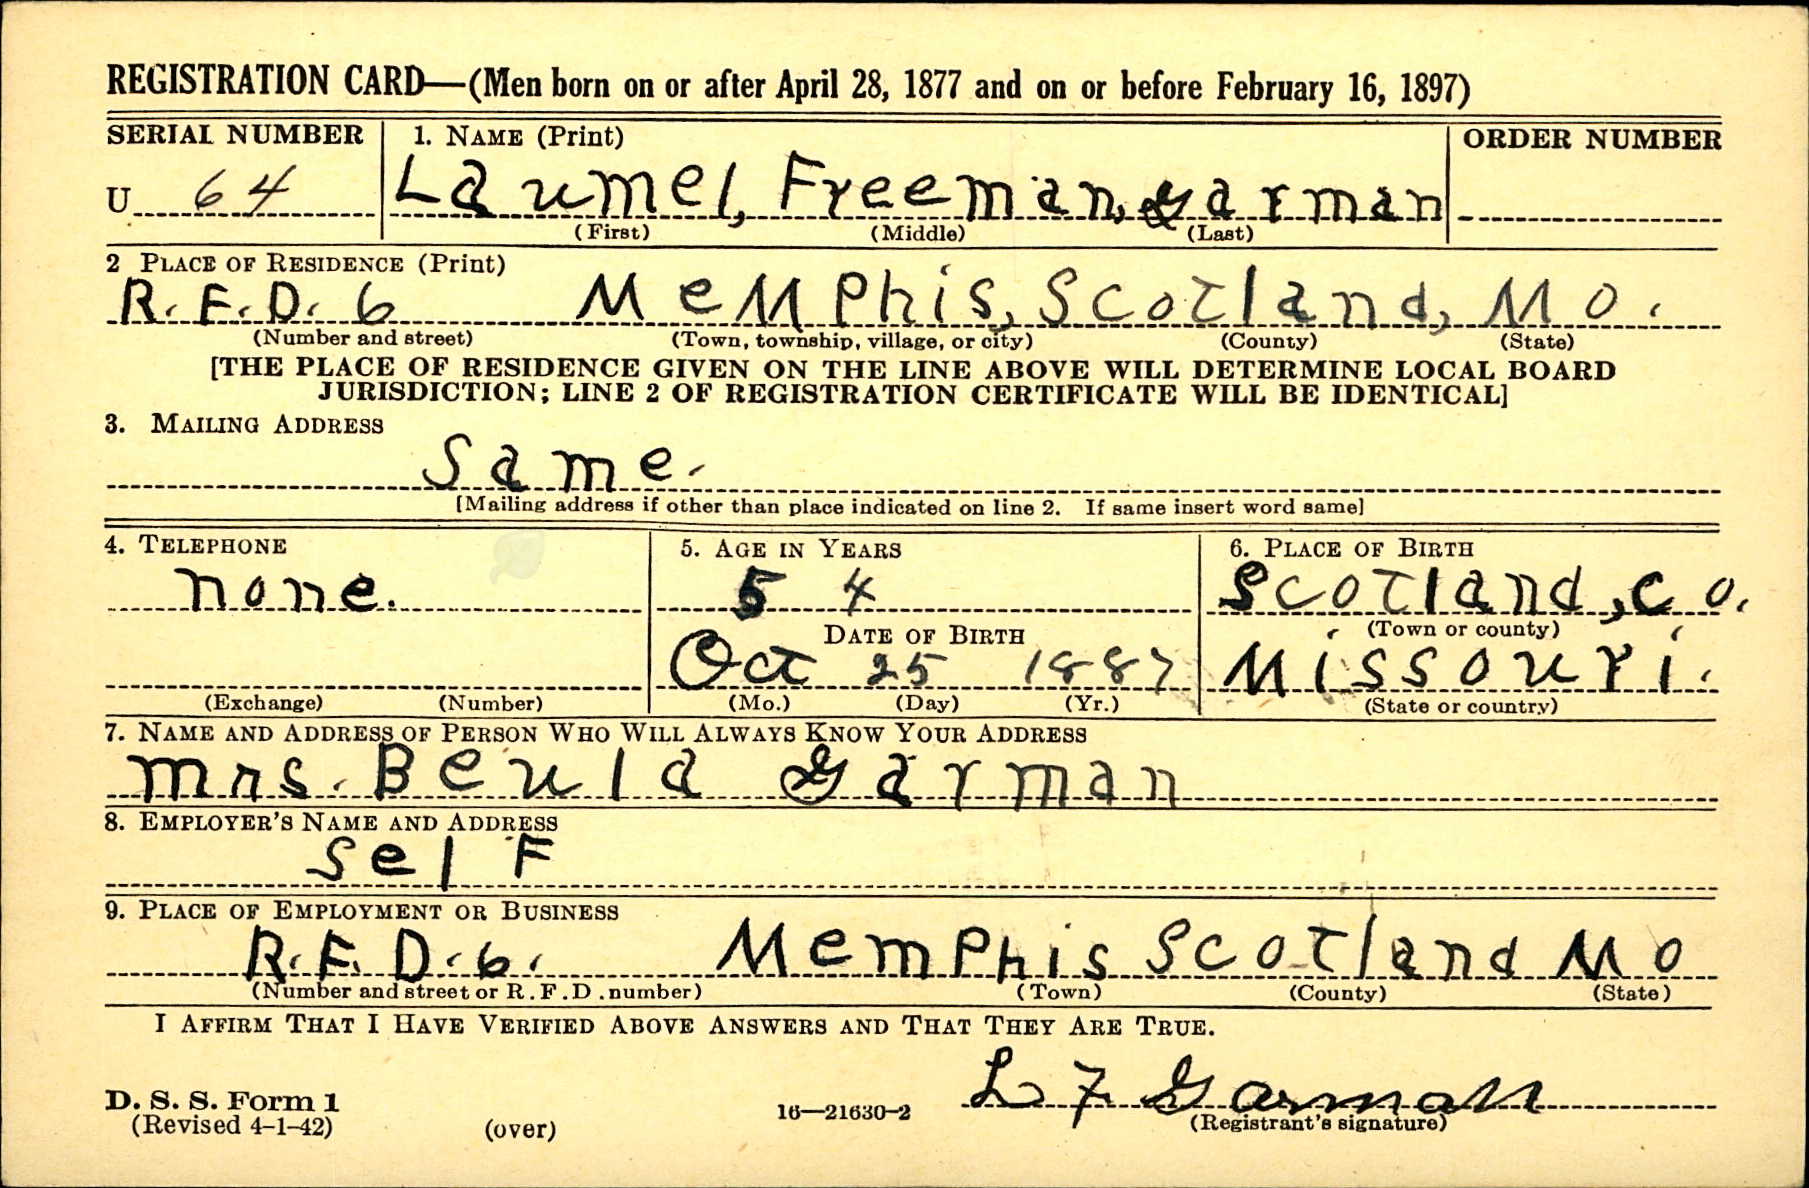 REGISTRATION CARD—(Men born on or after April 28, 1877 and on or before February 16, 1897)
SERIAL NUMBER 1. NAME (Print) ORDER NUMBER
U 64 Laumel, Freeman, Garman
(First) (Middle) (Last)
2 PLACE OF RESIDENCE (Print)
R.F.D. 6 MeMPhis, Scotland, Mo.
(Number and street) (Town, township, village, or city) (County) (State)
[THE PLACE OF RESIDENCE GIVEN ON THE LINE ABOVE WILL DETERMINE LOCAL BOARD
JURISDICTION; LINE 2 OF REGISTRATION CERTIFICATE WILL BE IDENTICAL]
3. MAILING ADDRESS
Same.
[Mailing address if other than place indicated on line 2. If same insert word same]
4. TELEPHONE 5. AGE IN YEARS 6. PLACE OF BIRTH
none. 54 Scotland, Co.
DATE OF BIRTH (Town or county)
Oct 25 1887 Missouri.
(Exchange) (Number) (Mo.) (Day) (Yr.) (State or country)
7. NAME AND ADDRESS OF PERSON WHO WILL ALWAYS KNOW YOUR ADDRESS
Mrs. Beula Garman
8. EMPLOYER'S NAME AND ADDRESS
SelF
9. PLACE OF EMPLOYMENT OR BUSINESS
R.F.D. 6. MemPhis Scotland Mo
(Number and street or R.F.D. number) (Town) (County) (State)
I AFFIRM THAT I HAVE VERIFIED ABOVE ANSWERS AND THAT THEY ARE TRUE.
L F Garman
D. S. S. Form 1 16—21630-2 (Registrant's signature)
(Revised 4-1-42) (over)